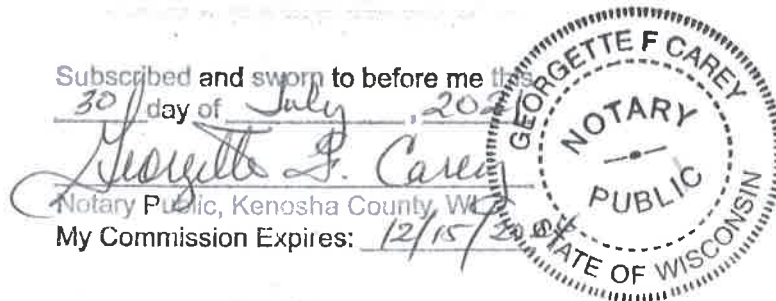 Subscribed and sworn to before me this
30 day of July, 202
Georgette F. Carey
Notary Public, Kenosha County, WI
My Commission Expires: 12/15/20
GEORGETTE F CAREY
NOTARY
PUBLIC
STATE OF WISCONSIN